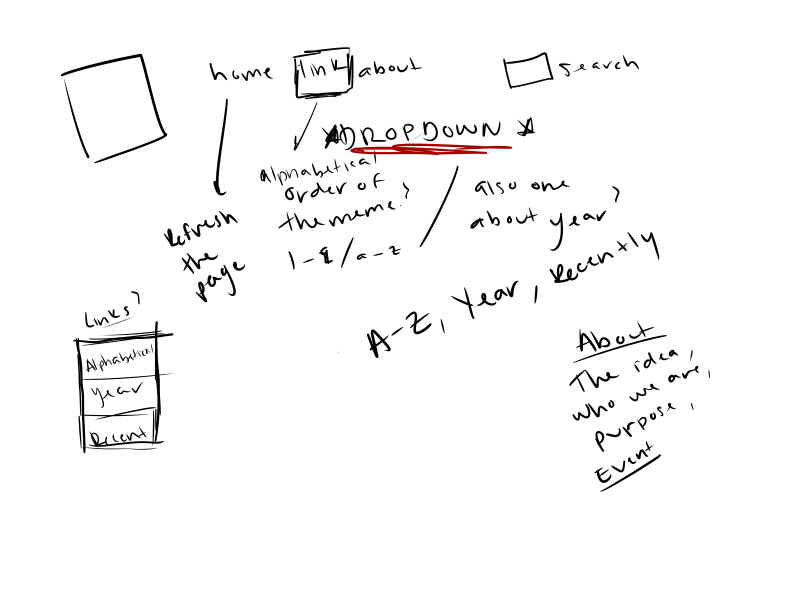 home link about search
DROPDOWN
alphabetical
order of
the meme?
1-9/a-z
also one
about year?
Refresh
the
page
A-Z, Year, Recently
Links?
Alphabetical
Year
Recent
About
The idea,
who we are,
purpose,
Event